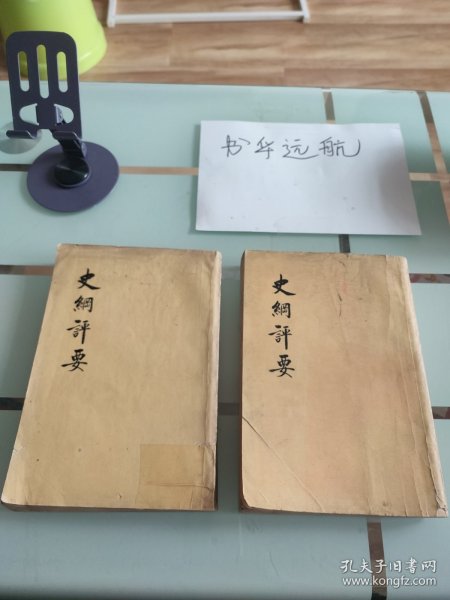 书华远航
史綱評要
史綱評要
孔夫子旧书网
www.kongfz.com